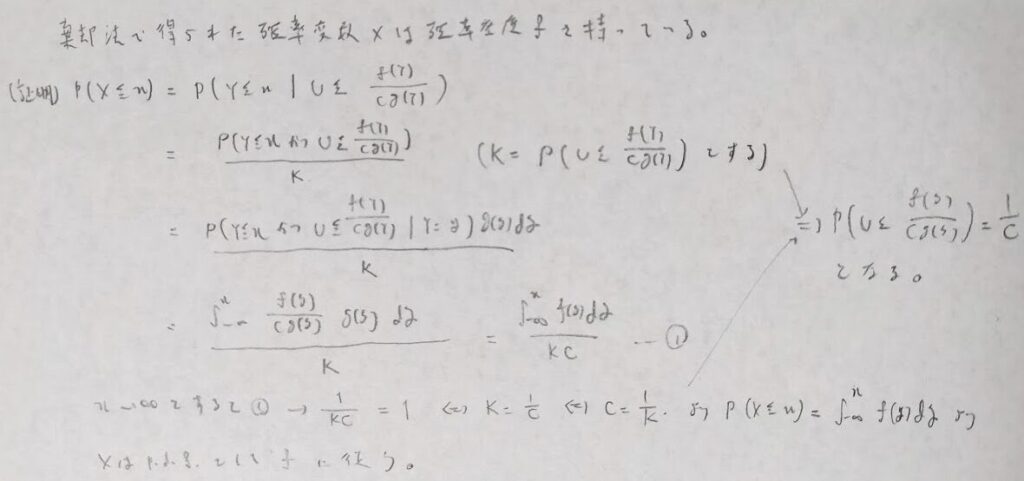 棄却法で得られた確率変数 X は確率密度 f を持っている。
(証明) P(X≦x) = P(Y≦x | U≦ f(Y)/cg(Y))
= P(Y≦x かつ U≦ f(Y)/cg(Y)) / K (K = P(U≦ f(Y)/cg(Y)) とする)
= P(Y≦x かつ U≦ f(Y)/cg(Y) | Y=y) g(y)dy / K
⇒ P(U≦ f(y)/cg(y)) = 1/c
となる。
= ∫_{-∞}^{x} f(y)/cg(y) g(y) dy / K = ∫_{-∞}^{x} f(y)dy / KC … ①
x→∞ とすると ① → 1/KC = 1 ⇔ K = 1/C ⇔ C = 1/K. より P(X≦x) = ∫_{-∞}^{x} f(y)dy より
X は p.d.f. として f に従う。